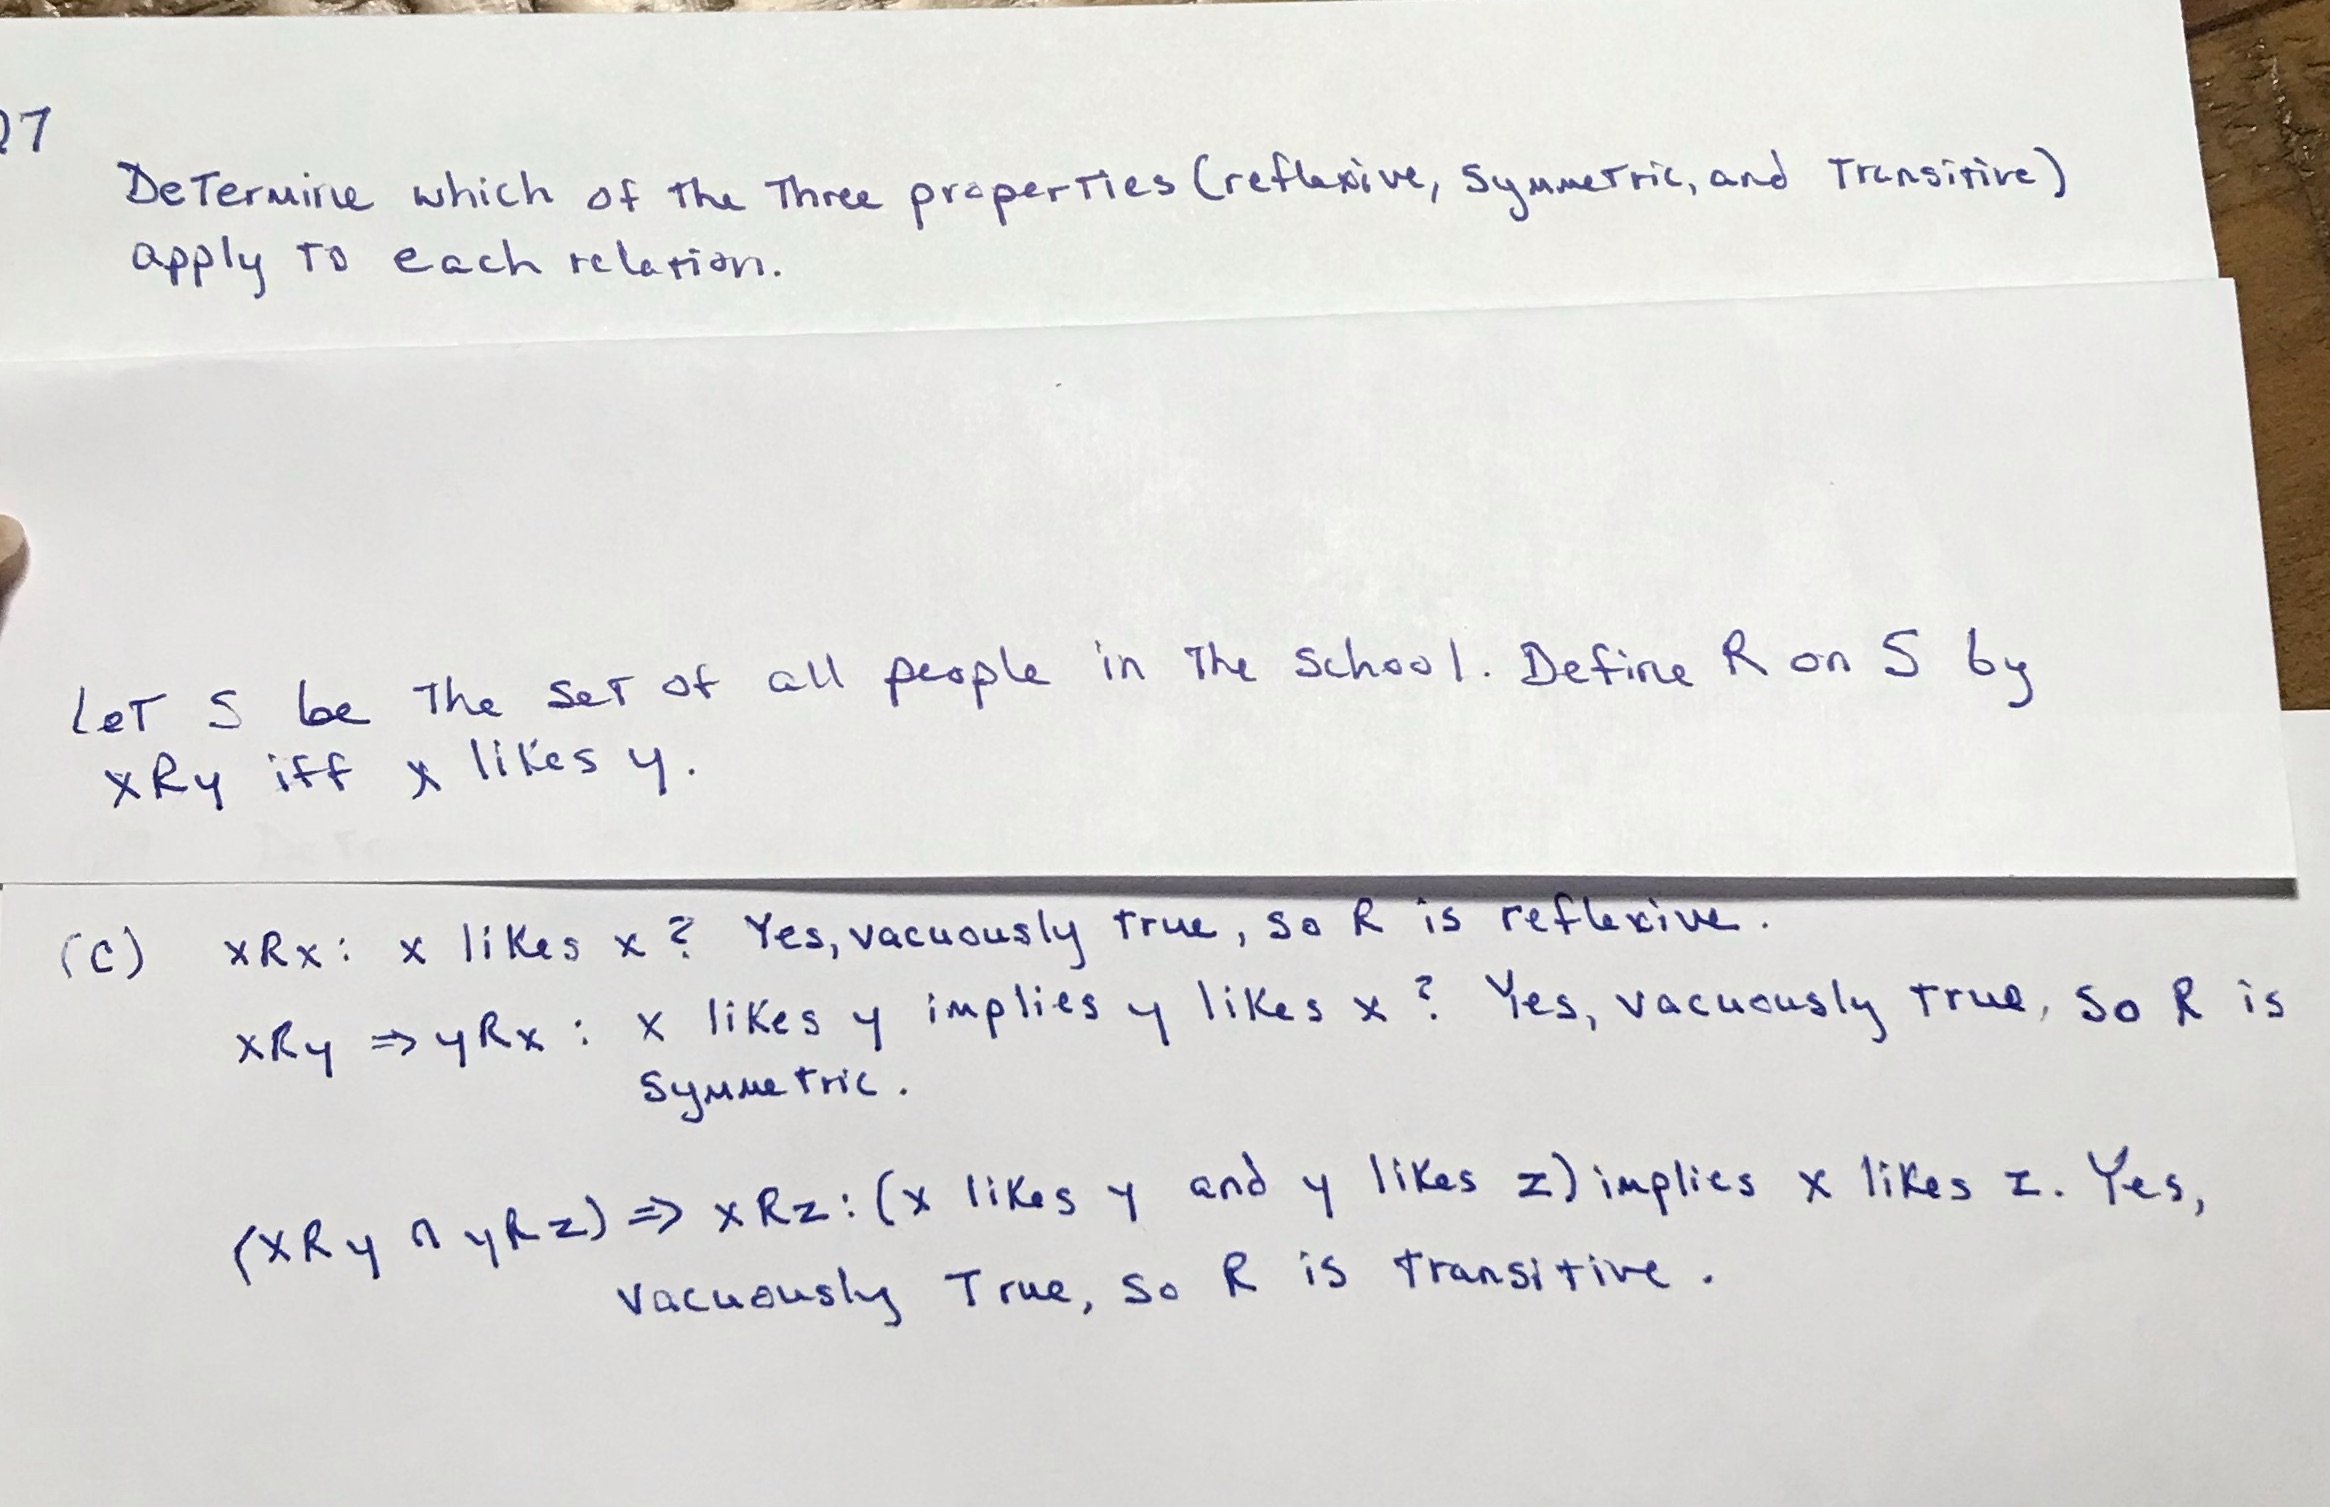 27
Determine which of the Three properties (reflexive, Symmetric, and Transitive)
apply to each relation.
Let S be the set of all people in the school. Define R on S by
xRy iff x likes y.
(c) xRx: x likes x? Yes, vacuously true, so R is reflexive.
xRy ⇒ yRx: x likes y implies y likes x? Yes, vacuously true, so R is
Symmetric.
(xRy ∩ yRz) ⇒ xRz: (x likes y and y likes z) implies x likes z. Yes,
vacuously True, so R is transitive.